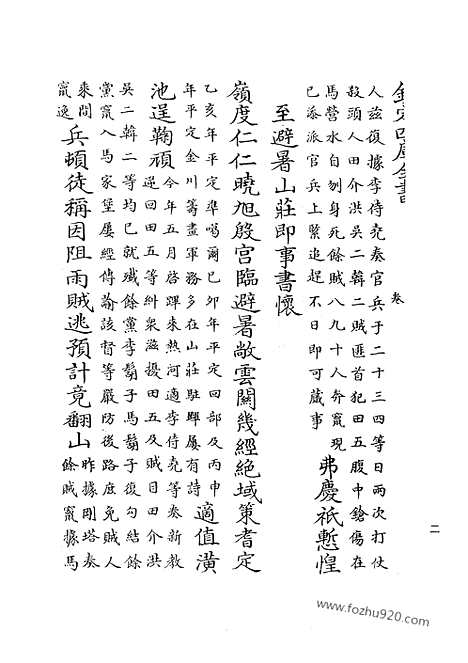 欽定四庫全書　卷　二
人兹復據李侍堯奏官兵于二十三四等日兩次打仗
殺頭人田介洪吳二韓二賊匪首犯田五腹中鎗傷在
馬營水自刎身死餘賊八九十人奔竄現
已添派官兵上緊追趕不日即可蕆事
弗慶祇慙惶
至避暑山莊即事書懷
嶺度仁仁曉旭殷宫臨避暑敞雲關幾經絶域策耆定
乙亥年平定準噶爾己卯年平定回部及丙申
年平定金川籌畫軍務多在山莊駐驆屢有詩
適值潢
池逞鞠頑
今年五月啓蹕来熱河適李侍堯等奏新教
逆回田五等糾衆滋擾田五及賊目田介洪
吳二韓二等均已就殲餘黨李鬍子馬鬍子復勾結餘
黨竄入馬家堡屢經傳諭該督等嚴防後路庶免賊人
乘間
竄逸
兵頓徒稱因阻雨賊逃預計竟翻山
昨據剛塔奏
餘賊竄據馬
www.fozhu920.com